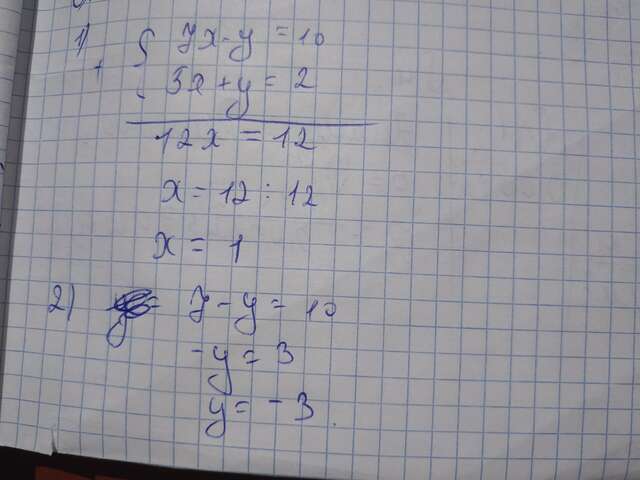 1) { 7x - y = 10
+ 5x + y = 2
12x = 12
x = 12 : 12
x = 1
2) 7 - y = 10
-y = 3
y = -3.